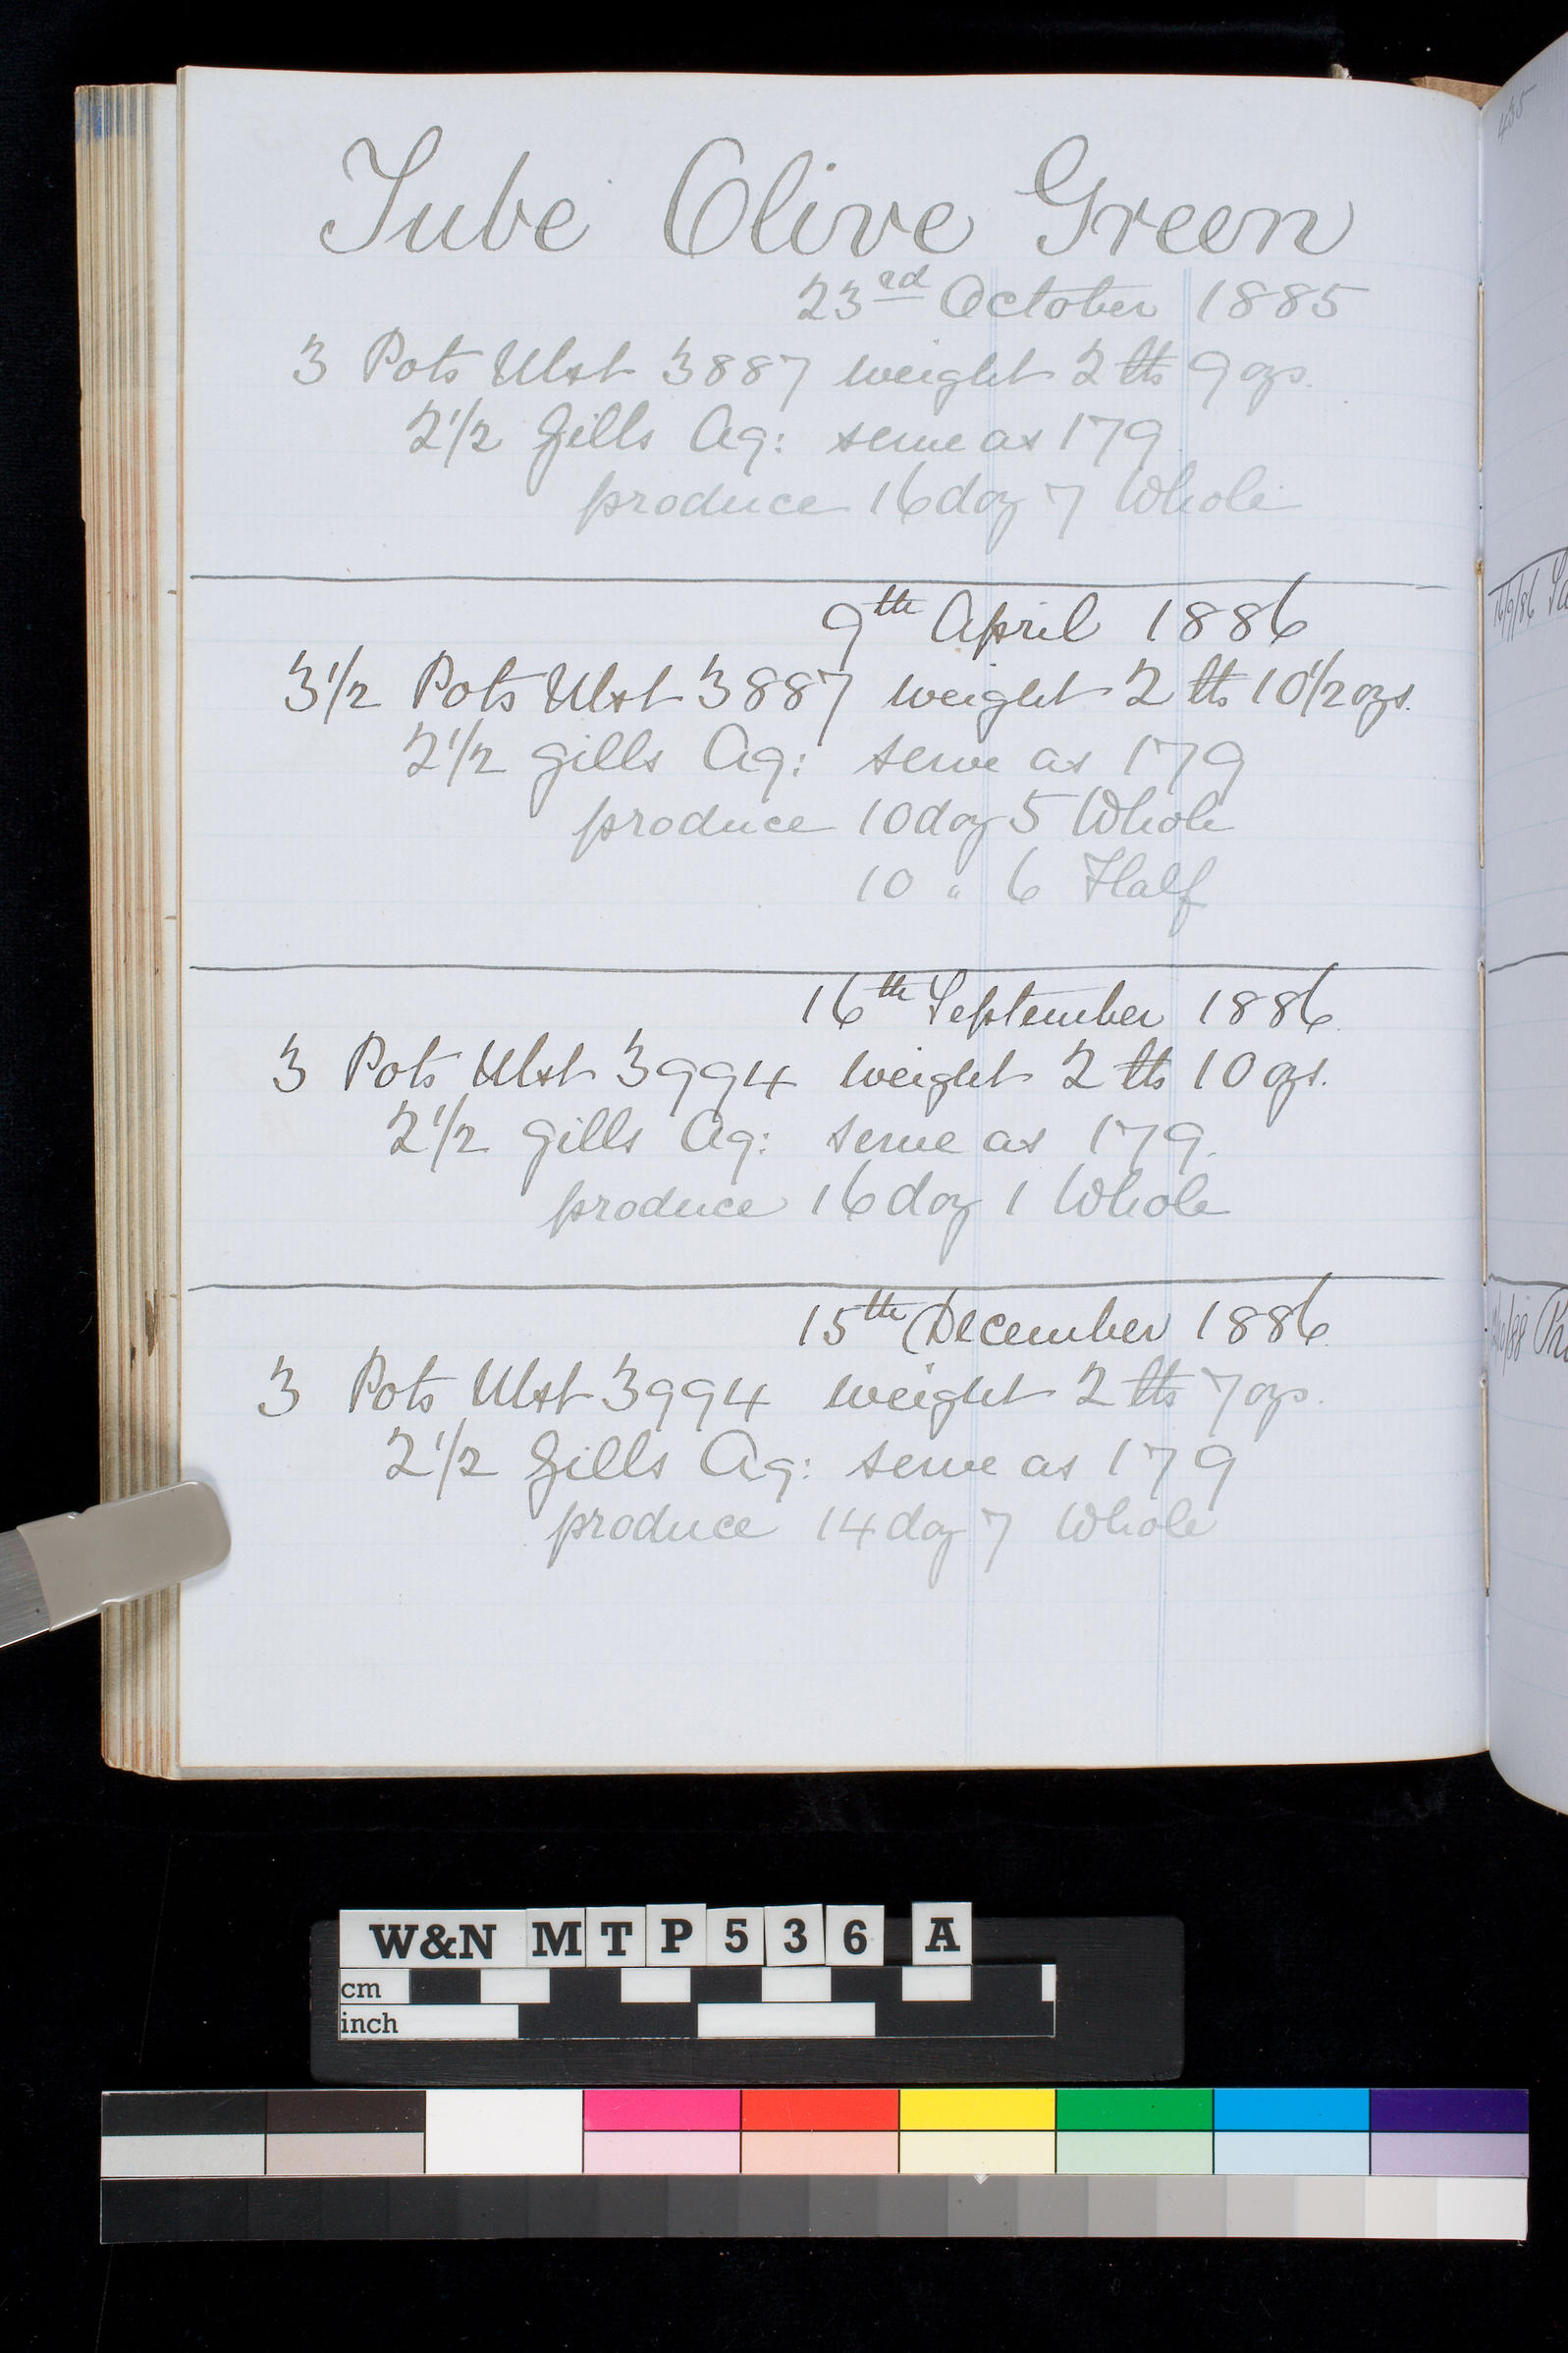 Tube Olive Green
23rd October 1885
3 Pots Ulst 3887 weight 2 lbs 9 ozs.
2 1/2 Gills Aq: serve as 179
produce 16 doz 7 Whole
9th April 1886
3 1/2 Pots Ulst 3887 weight 2 lbs 10 1/2 ozs.
2 1/2 gills Aq: serve as 179
produce 10 doz 5 Whole
10 " 6 Half
16th September 1886
3 Pots Ulst 3994 weight 2 lbs 10 ozs.
2 1/2 gills Aq: serve as 179.
produce 16 doz 1 Whole
15th December 1886
3 Pots Ulst 3994 weight 2 lbs 7 ozs.
2 1/2 Gills Aq: serve as 179
produce 14 doz 7 Whole
435
16/9/86
W&N MTP536 A
cm
inch